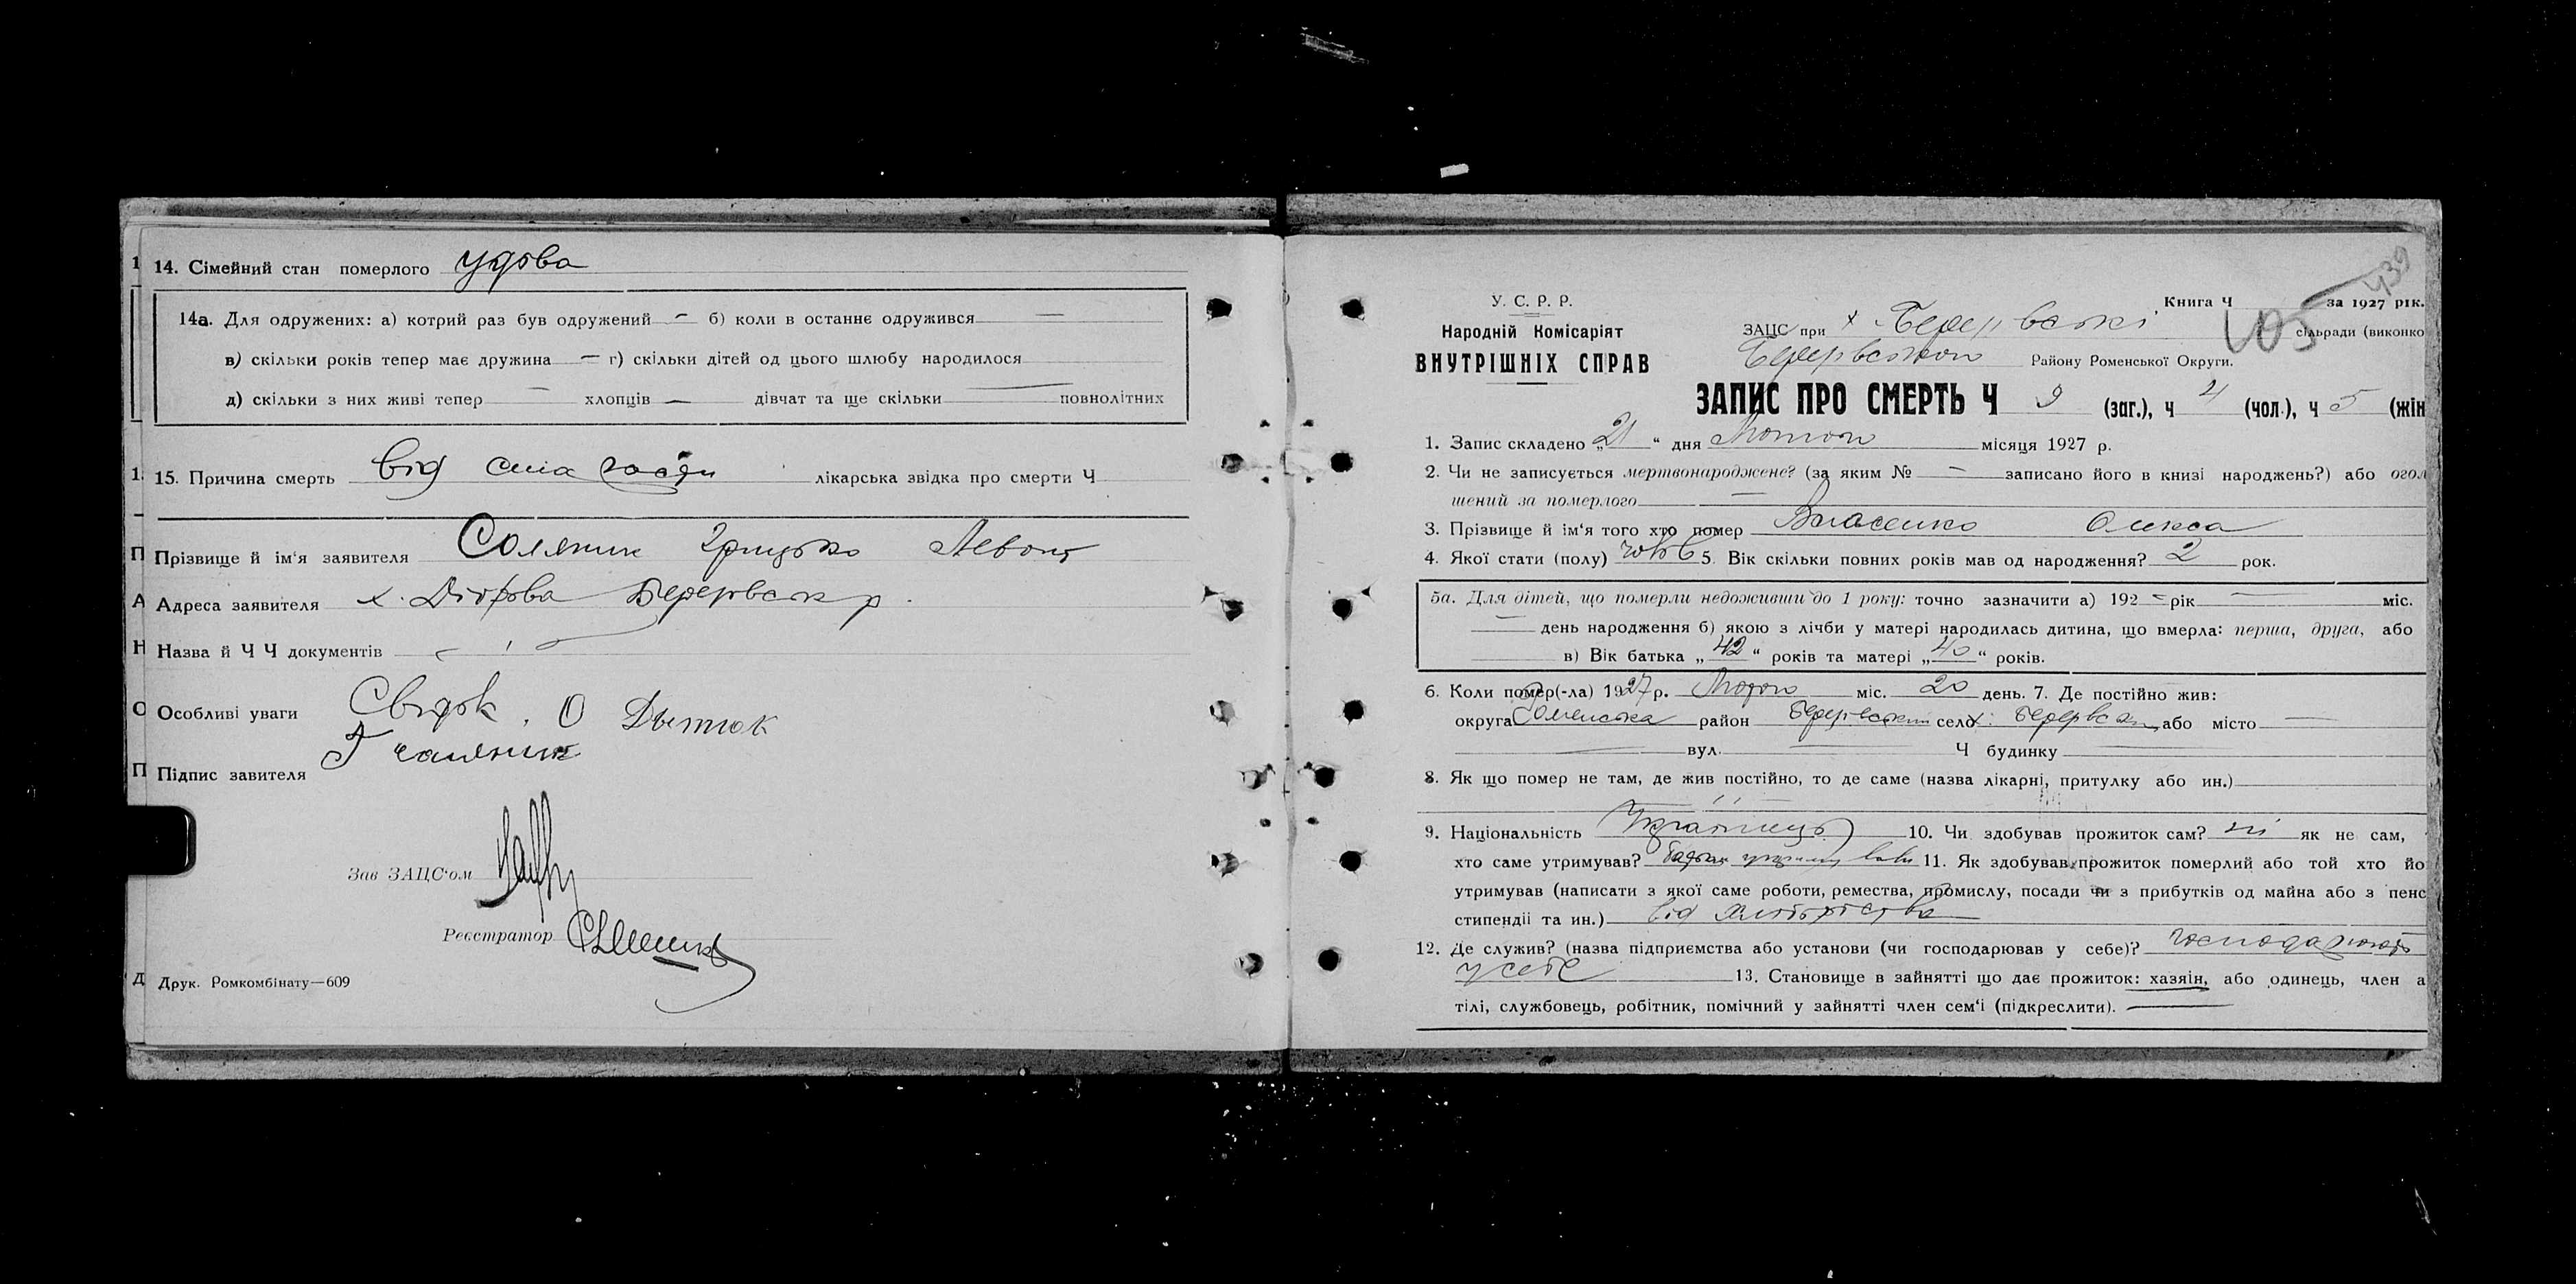 14. Сімейний стан померлого удова
14а. Для одружених: а) котрий раз був одружений — б) коли в останнє одружився —
в) скільки років тепер має дружина — г) скільки дітей од цього шлюбу народилося
д) скільки з них живі тепер — хлопців — дівчат та ще скільки — повнолітних
15. Причина смерть від лікарська звідка про смерти Ч
Прізвище й ім'я заявителя Соляник Грицько Левонт
Адреса заявителя х. Діброва
Назва й Ч Ч документів
Особливі уваги Свідок. О
Підпис завителя
Зав ЗАЦС'ом
Реєстратор
Друк. Ромкомбінату—609
У. С. Р. Р.
Народній Комісаріят
ВНУТРІШНІХ СПРАВ
439
Книга Ч за 1927 рік.
105
ЗАЦС при х. сільради (виконко
Району Роменської Округи.
ЗАПИС ПРО СМЕРТЬ Ч 9 (заг.), ч 4 (чол.), ч 5 (жін
1. Запис складено „21" дня місяця 1927 р.
2. Чи не записується мертвонароджене? (за яким № — записано його в книзі народжень?) або огол
шений за померлого —
3. Прізвище й ім'я того хто помер Власенко Олекса
4. Якої стати (полу) 5. Вік скільки повних років мав од народження? 2 рок.
5а. Для дітей, що померли недоживши до 1 року: точно зазначити а) 192 — рік — міс.
— день народження б) якою з лічби у матері народилась дитина, що вмерла: перша, друга, або
в) Вік батька „42" років та матері „40" років.
6. Коли помер(-ла) 1927 р. міс. 20 день. 7. Де постійно жив:
округа Роменська район село х. або місто —
— вул. — Ч будинку —
8. Як що помер не там, де жив постійно, то де саме (назва лікарні, притулку або ин.)
9. Національність Українець 10. Чи здобував прожиток сам? ні як не сам,
хто саме утримував? 11. Як здобував прожиток померлий або той хто йо
утримував (написати з якої саме роботи, ремества, промислу, посади чи з прибутків од майна або з пенс
стипендії та ин.) від хліборобства
12. Де служив? (назва підприємства або установи (чи господарював у себе)? господарюють
у себе 13. Становище в зайнятті що дає прожиток: хазяін, або одинець, член а
тілі, службовець, робітник, помічний у зайнятті член сем'і (підкреслити). —